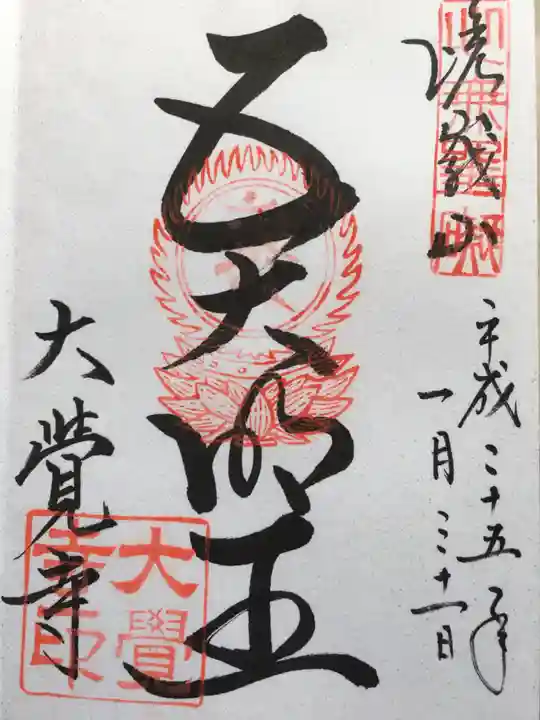 嵯峨山
平成二十五年
一月三十一日
五大明王
大覺寺
大覺寺印